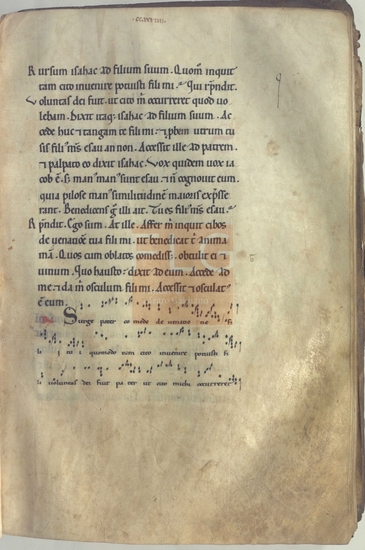 Rursum isahac ad filium suum. Quom̃ inquit
tam cito invenire potuisti fili mi. Qui rp̃ndit.
Voluntas dei fuit. ut cito m̃ occurreret quod vo
lebam. Dixit itaq; isahac ad filium suum. Ac
cede huc ut tangam te fili mi. & p̃bem utrum tu
sis fili' m̃s esau an non. Accessit ille ad patrem.
& palpato eo dixit isahac. Vox quidem vox ia
cob ẽ. s; man' man' sunt esau. & ñ cognovit eum.
quia pilose man' similitudinẽ maioris exp̃sse
rant. Benedicens g̃ illi ait. Tu es fili' m̃s esau.
Rp̃ndit. Ego sum. At ille. Affer m̃ inquit cibos
de venatione tua fili mi. ut benedicat t̃ anima
m̃a. Quos cum oblatos comedisset. obtulit ei &
vinum. Quo hausto. dixit ad eum. Accede ad
me & da m̃ osculum fili mi. Accessit & osculat'
ẽ eum.
Surge pater comede de venatione fi
li mi quomodo tam cito invenire potuisti fi
li voluntas dei fuit pater ut cito michi occurreret